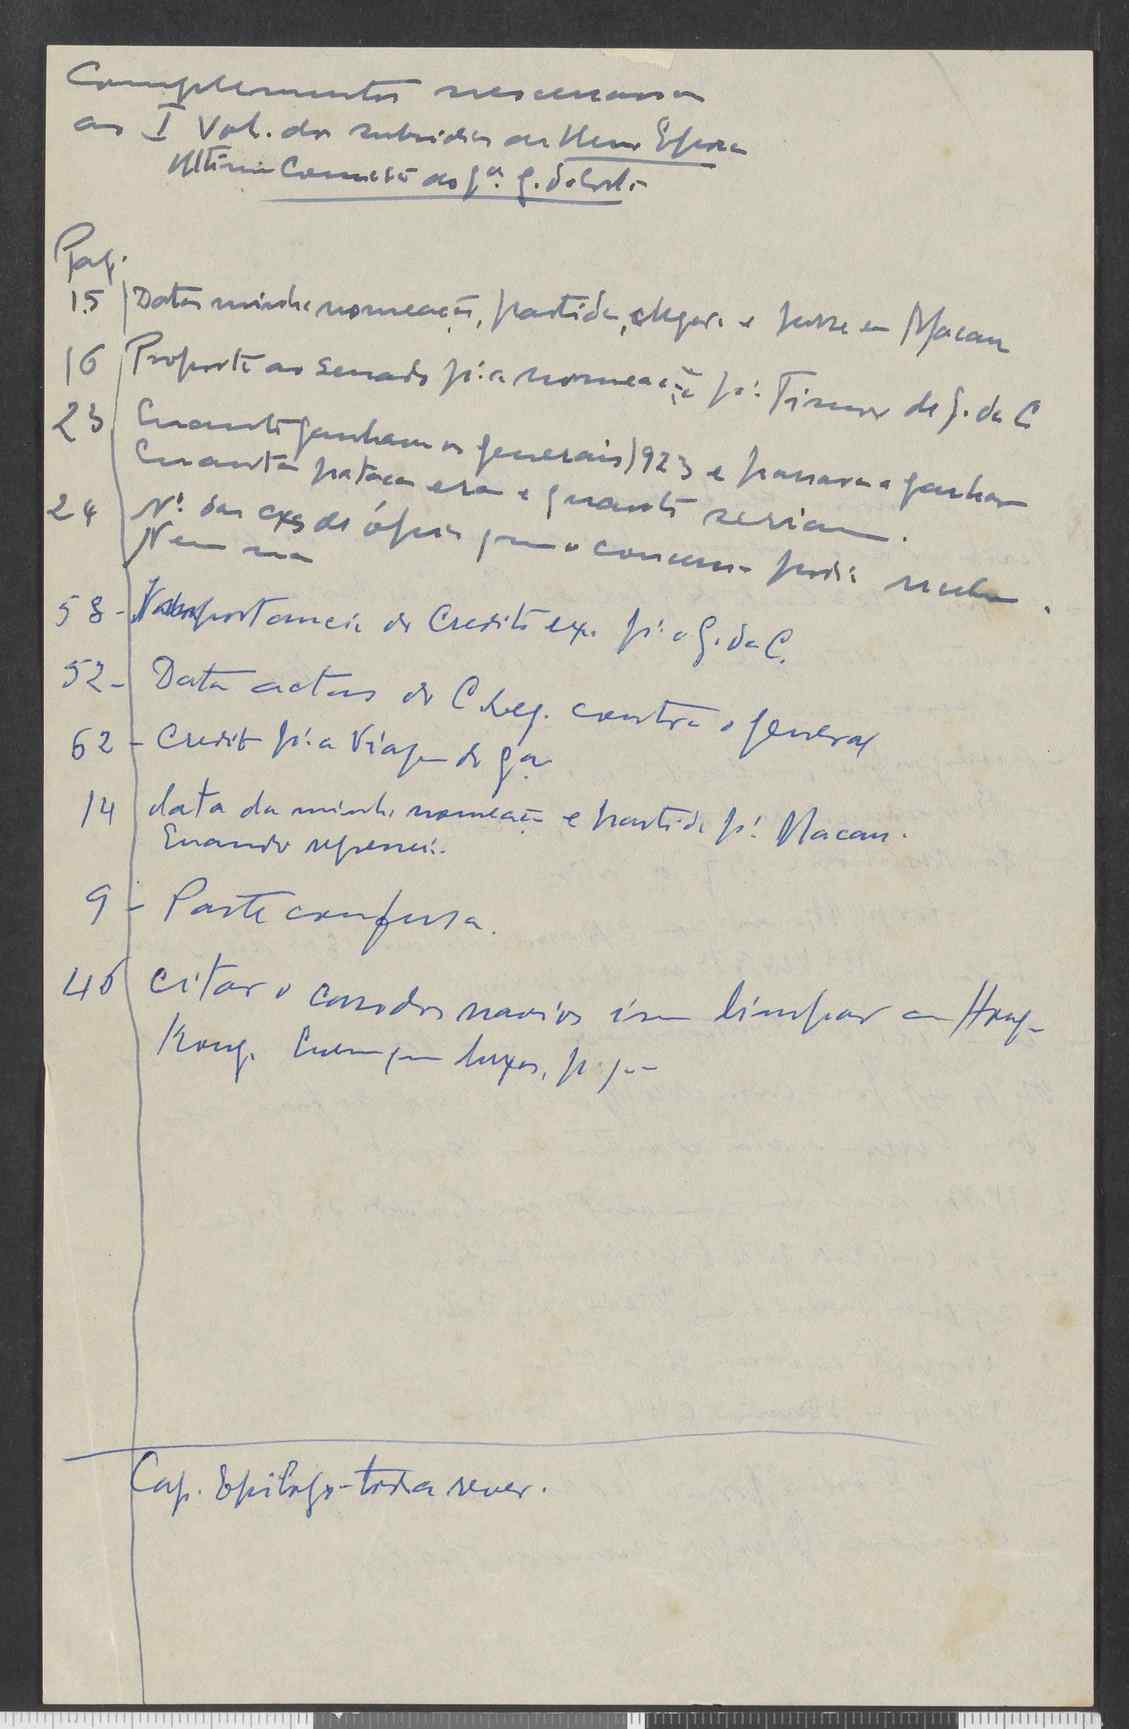 Complementos necessarios
ao I Vol. dos subsidios
Ultima Comissão do Ga. G. da Costa
Pag.
15 Datas minha nomeação, partida, chegada e posse em Macau
16 Proposta ao Senado pª a nomeação pª Timor de G. da C
23 Quanto ganhavam os generais 1923 e passaram a ganhar
Quantas patacas eram e quanto seriam.
24 Nº das cxs de ópio que o concurso podia
58 - Importancia do Credito ex. pª o G. da C.
52 - Data actas do C. Leg. contra o general
62 - Credito pª a Viagem do Ga
14 data da minha nomeação e partida pª Macau.
Quando regressei.
9 - Parte confusa.
46 Citar o caso dos navios irem limpar em Hong-
Kong.
Cap. Epilogo - toda rever.